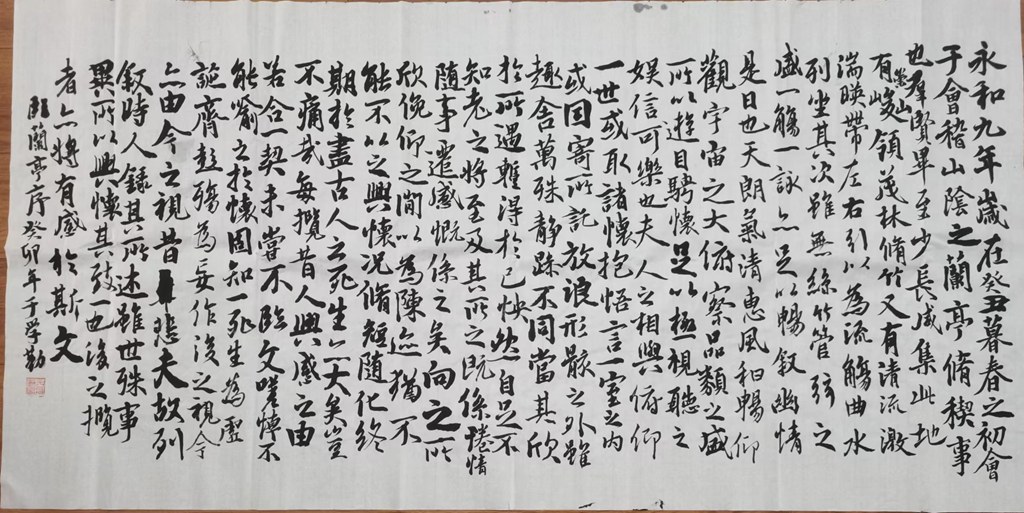 永和九年歲在癸丑暮春之初會
于會稽山陰之蘭亭脩稧事
也羣賢畢至少長咸集此地
有崇山峻領茂林脩竹又有清流激
湍暎帶左右引以為流觴曲水
列坐其次雖無絲竹管弦之
盛一觴一詠亦足以暢敘幽情
是日也天朗氣清惠風和暢仰
觀宇宙之大俯察品類之盛
所以遊目騁懷足以極視聽之
娛信可樂也夫人之相與俯仰
一世或取諸懷抱悟言一室之內
或因寄所託放浪形骸之外雖
趣舍萬殊静躁不同當其欣
於所遇暫得於己怏然自足不
知老之將至及其所之既係惓情
隨事遷感慨係之矣向之所
欣俛仰之閒以為陳迹猶不
能不以之興懷況脩短隨化終
期於盡古人云死生亦大矣豈
不痛哉每攬昔人興感之由
若合一契未嘗不臨文嗟悼不
能喻之於懷固知一死生為虛
誕齊彭殤為妄作後之視今
亦由今之視昔悲夫故列
敘時人錄其所述雖世殊事
異所以興懷其致一也後之攬
者亦將有感於斯文
臨蘭亭序癸卯年于学勤